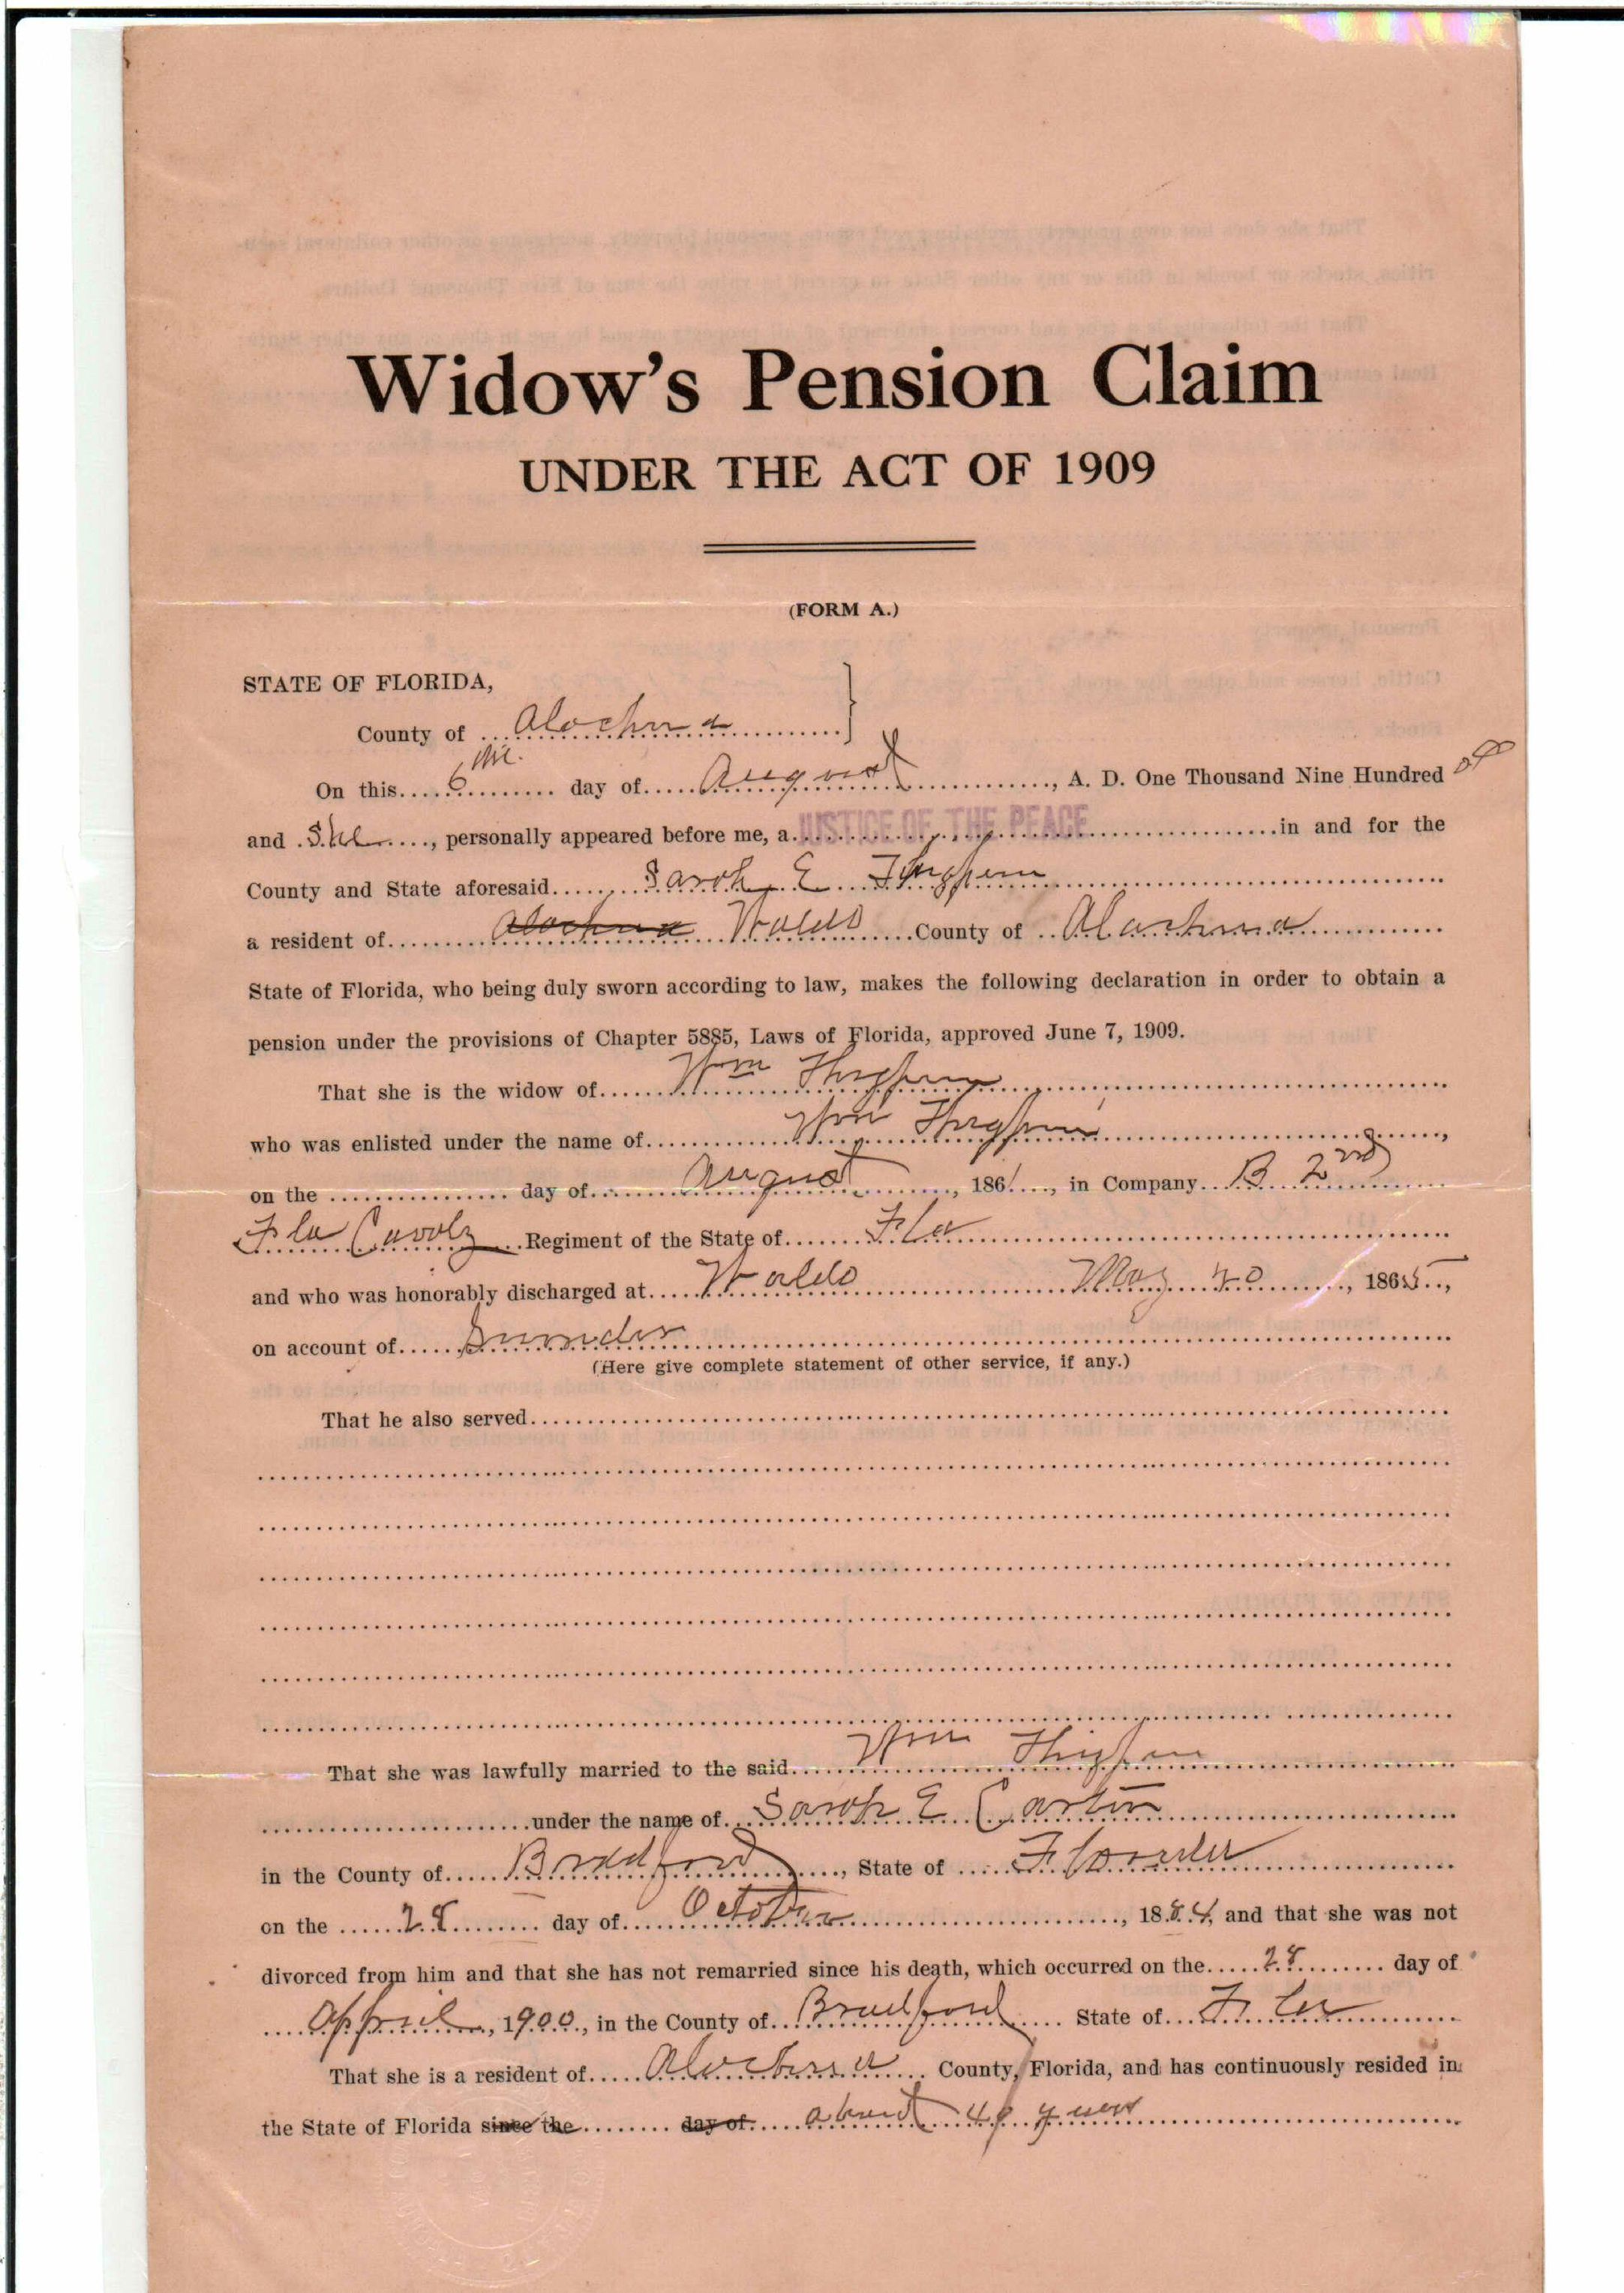 Widow's Pension Claim
UNDER THE ACT OF 1909
(FORM A.)
STATE OF FLORIDA,
County of Alachua
On this 6 day of August, A. D. One Thousand Nine Hundred
and She, personally appeared before me, a JUSTICE OF THE PEACE in and for the
County and State aforesaid Sarah E Thigpen
a resident of Alachua Waldo County of Alachua
State of Florida, who being duly sworn according to law, makes the following declaration in order to obtain a
pension under the provisions of Chapter 5885, Laws of Florida, approved June 7, 1909.
That she is the widow of Wm Thigpen
who was enlisted under the name of Wm Thigpen,
on the day of August, 1861, in Company B 2nd
Fla Cavaly Regiment of the State of Fla
and who was honorably discharged at Waldo May, 1865,
on account of
(Here give complete statement of other service, if any.)
That he also served
That she was lawfully married to the said Wm Thigpen
under the name of Sarah E
in the County of Bradford, State of
on the 28 day of October, 1884, and that she was not
divorced from him and that she has not remarried since his death, which occurred on the 28 day of
April, 1900, in the County of Bradford State of Fla
That she is a resident of Alachua County, Florida, and has continuously resided in
the State of Florida since the day of about years